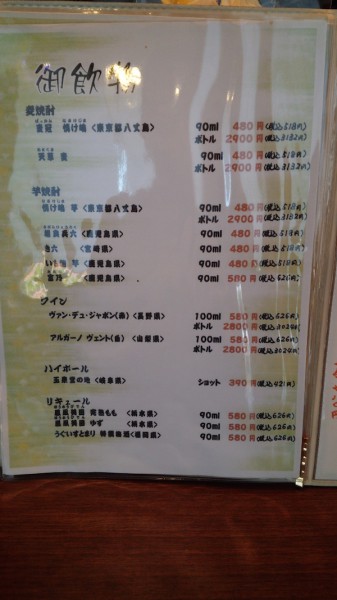 御飲物
麦焼酎
麦冠 情け嶋 <東京都八丈島> 90ml 480円(税込518円)
ボトル 2900円(税込3132円)
天草 麦 90ml 480円(税込518円)
ボトル 2900円(税込3132円)
芋焼酎
情け嶋 芋 <東京都八丈島> 90ml 480円(税込518円)
ボトル 2900円(税込3132円)
<鹿児島県> 90ml 480円(税込518円)
<宮崎県> 90ml 480円(税込518円)
芋 <鹿児島県> 90ml 480円(税込518円)
富乃 <鹿児島県> 90ml 580円(税込626円)
ワイン
ヴァン・デュ・ジャポン(赤) <長野県> 100ml 580円(税込626円)
ボトル 2800円(税込3024円)
アルガーノ ヴェント(白) <山梨県> 100ml 580円(税込626円)
ボトル 2800円(税込3024円)
ハイボール
<岐阜県> ショット 390円(税込421円)
リキュール
鳳凰美田 完熟もも <栃木県> 90ml 580円(税込626円)
鳳凰美田 ゆず <栃木県> 90ml 580円(税込626円)
うぐいすとまり 特撰梅酒 <福岡県> 90ml 580円(税込626円)